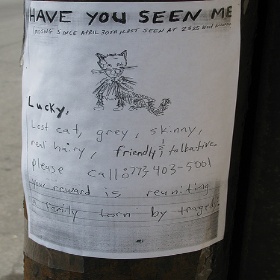 HAVE YOU SEEN ME
MISSING SINCE APRIL 30TH LAST SEEN AT 2325
Lucky,
Lost cat, grey, skinny,
real hairy, friendly & talkative
please call: 773 403-5001
your reward is reuniting
a family torn by